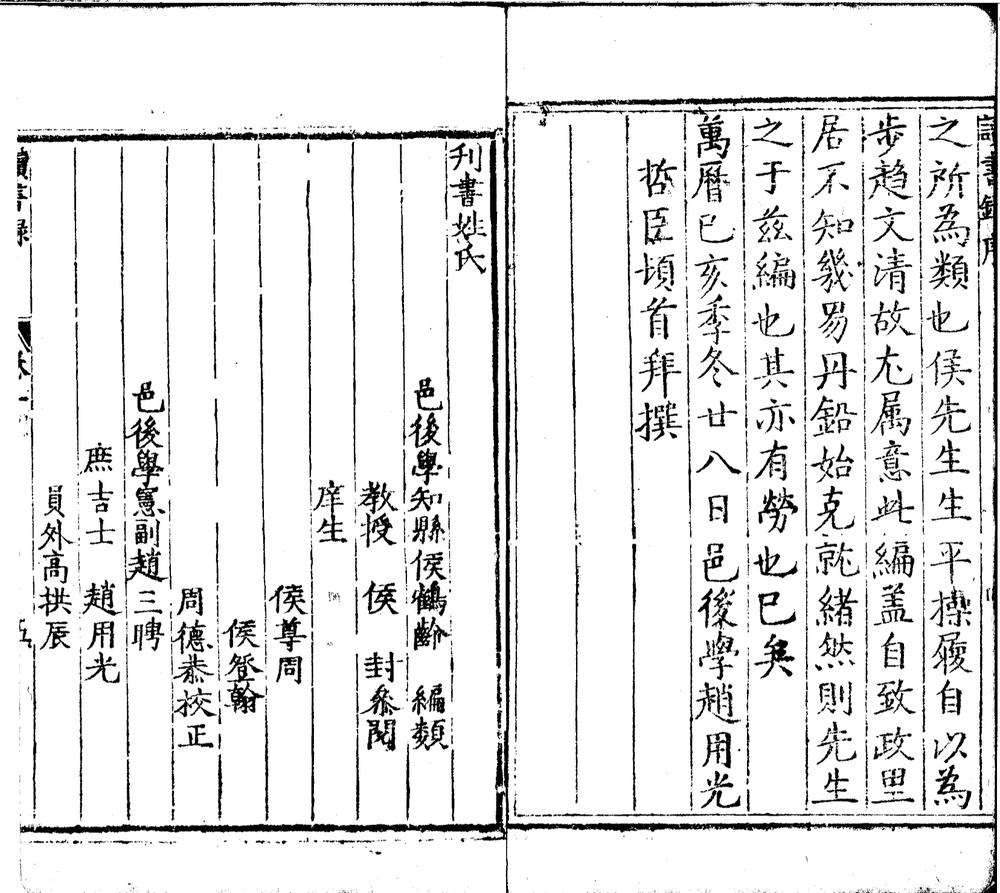 讀書錄序
之所為類也侯先生生平操履自以為
步趋文清故尤属意此編盖自致政里
居不知幾易丹鉛始克就緒然則先生
之于兹編也其亦有勞也已矣
萬曆己亥季冬廿八日邑後學趙用光
拞臣頓首拜撰
刋書姓氏
邑後學知縣侯鶴齡 編類
教授 侯 封叅閱
庠生
侯尊周
侯登翰
周德恭挍正
邑後學憲副趙三聘
庶吉士 趙用光
員外高拱辰
讀書錄 卷一 五